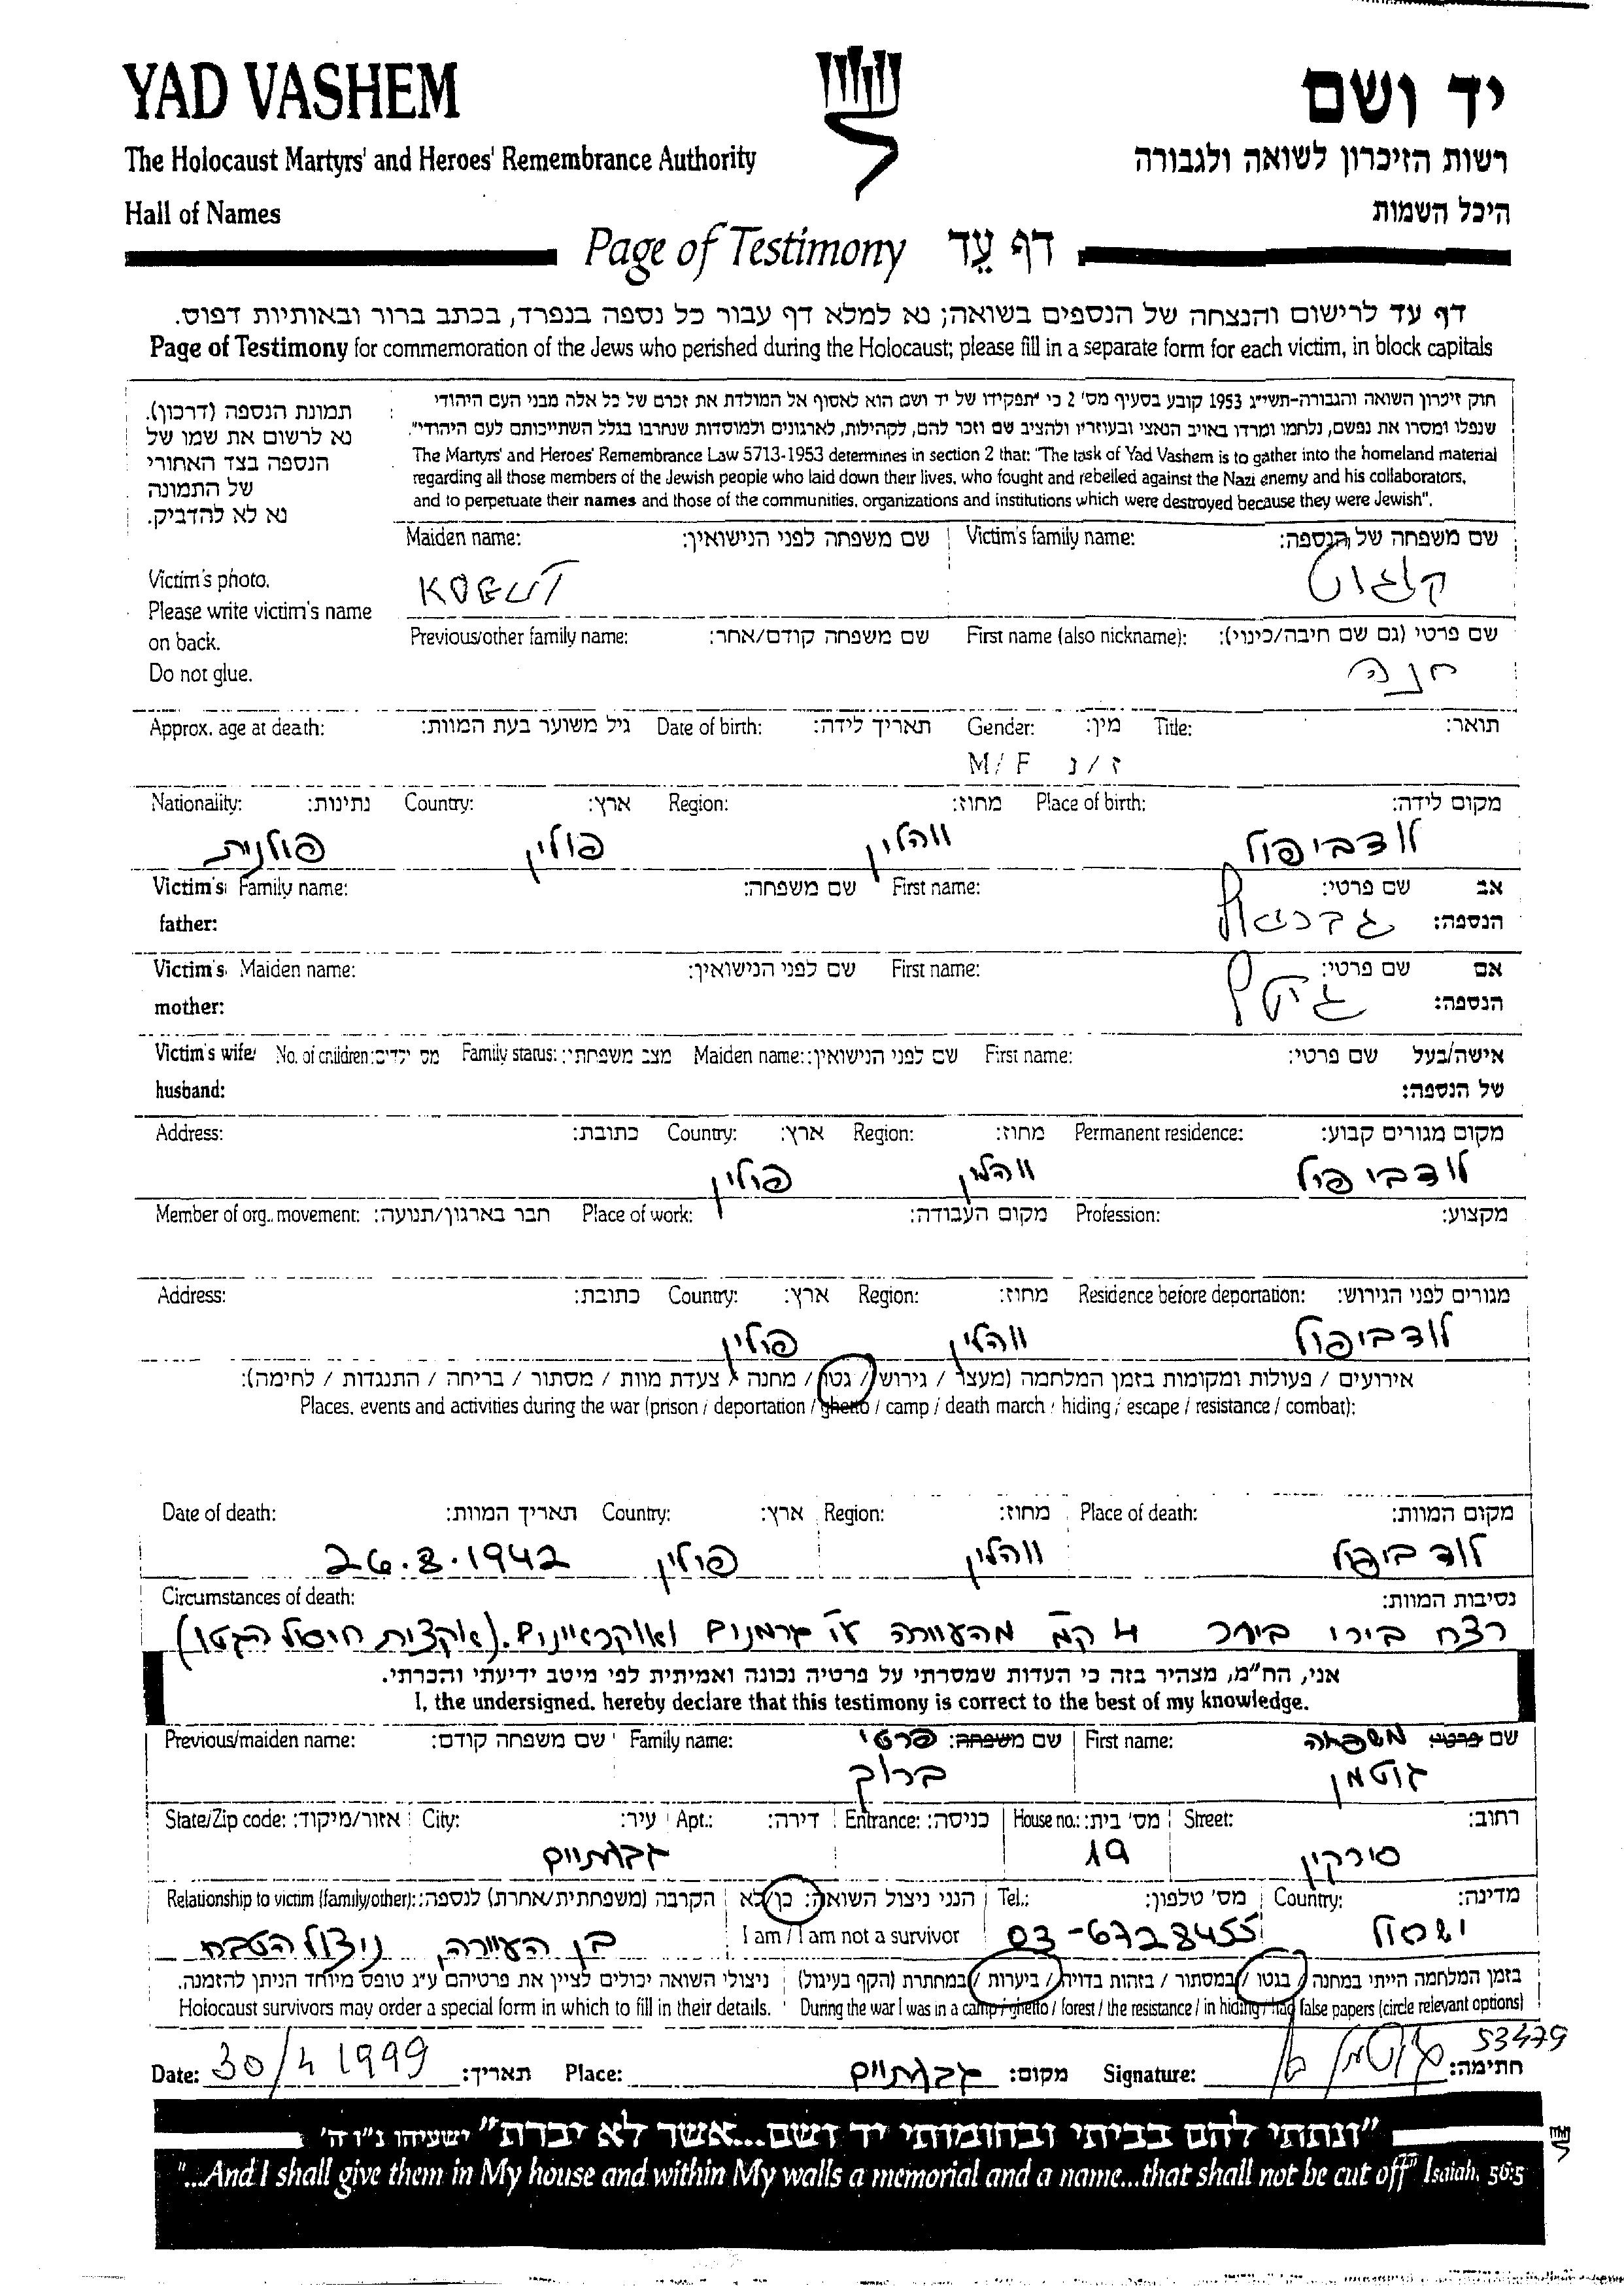 YAD VASHEM יד ושם
The Holocaust Martyrs' and Heroes' Remembrance Authority רשות הזיכרון לשואה ולגבורה
Hall of Names היכל השמות
Page of Testimony דף עֵד
דף עד לרישום והנצחה של הנספים בשואה; נא למלא דף עבור כל נספה בנפרד, בכתב ברור ובאותיות דפוס.
Page of Testimony for commemoration of the Jews who perished during the Holocaust; please fill in a separate form for each victim, in block capitals
חוק זיכרון השואה והגבורה-תשי״ג 1953 קובע בסעיף מס' 2 כי "תפקידו של יד ושם הוא לאסוף אל המולדת את זכרם של כל אלה מבני העם היהודי
שנפלו ומסרו את נפשם, נלחמו ומרדו באויב הנאצי ובעוזריו ולהציב שם וזכר להם, לקהילות, לארגונים ולמוסדות שנחרבו בגלל השתייכותם לעם היהודי".
The Martyrs' and Heroes' Remembrance Law 5713-1953 determines in section 2 that: "The task of Yad Vashem is to gather into the homeland material
regarding all those members of the Jewish people who laid down their lives, who fought and rebelled against the Nazi enemy and his collaborators,
and to perpetuate their names and those of the communities, organizations and institutions which were destroyed because they were Jewish".
תמונת הנספה (דרכון).
נא לרשום את שמו של
הנספה בצד האחורי
של התמונה
נא לא להדביק.
Victim's photo.
Please write victim's name
on back.
Do not glue.
Maiden name: שם משפחה לפני הנישואין: Victim's family name: שם משפחה של הנספה:
KOGUT קוגוט
Previous/other family name: שם משפחה קודם/אחר: First name (also nickname): שם פרטי (גם שם חיבה/כינוי):
חנה
Approx. age at death: גיל משוער בעת המוות: Date of birth: תאריך לידה: Gender: מין: Title: תואר:
M/F ז/נ
Nationality: נתינות: Country: ארץ: Region: מחוז: Place of birth: מקום לידה:
פולנית פולין ווהלין לודביפול
Victim's Family name: שם משפחה: First name: שם פרטי: אב
father: הנספה:
גבריאל
Victim's Maiden name: שם לפני הנישואין: First name: שם פרטי: אם
mother: הנספה:
Victim's wife/ No. of children: מס ילדים: Family status: מצב משפחתי: Maiden name: שם לפני הנישואין: First name: שם פרטי: אישה/בעל
husband: של הנספה:
Address: כתובת: Country: ארץ: Region: מחוז: Permanent residence: מקום מגורים קבוע:
פולין ווהלין לודביפול
Member of org., movement: חבר בארגון/תנועה: Place of work: מקום העבודה: Profession: מקצוע:
Address: כתובת: Country: ארץ: Region: מחוז: Residence before deportation: מגורים לפני הגירוש:
פולין ווהלין לודביפול
אירועים / פעולות ומקומות בזמן המלחמה (מעצר / גירוש / גטו / מחנה / צעדת מוות / מסתור / בריחה / התנגדות / לחימה):
Places, events and activities during the war (prison / deportation / ghetto / camp / death march / hiding / escape / resistance / combat):
Date of death: תאריך המוות: Country: ארץ: Region: מחוז: Place of death: מקום המוות:
26.8.1942 פולין ווהלין לודביפול
Circumstances of death: נסיבות המוות:
רצח בירי ביער 4 ק"מ מהעיירה ע"י גרמנים ואוקראיינים. (אקצית חיסול הגטו)
אני, הח״מ, מצהיר בזה כי העדות שמסרתי על פרטיה נכונה ואמיתית לפי מיטב ידיעתי והכרתי.
I, the undersigned, hereby declare that this testimony is correct to the best of my knowledge.
Previous/maiden name: שם משפחה קודם: Family name: שם משפחה: פרטי First name: שם פרטי: משפחה
ברוך גוטמן
State/Zip code: אזור/מיקוד: City: עיר: Apt.: דירה: Entrance: כניסה: House no.: מס' בית: Street: רחוב:
גבעתיים 19 סירקין
Relationship to victim (family/other): הקרבה (משפחתית/אחרת) לנספה: הנני ניצול השואה: כן/לא Tel.: מס' טלפון: Country: מדינה:
I am / I am not a survivor
בן העיירה, ניצול הטבח 03-6728455 ישראל
בזמן המלחמה הייתי במחנה / בגטו / במסתור / בזהות בדויה / ביערות / במחתרת (הקף בעיגול) ניצולי השואה יכולים לציין את פרטיהם ע״ג טופס מיוחד הניתן להזמנה.
Holocaust survivors may order a special form in which to fill in their details. During the war I was in a camp / ghetto / forest / the resistance / in hiding / had false papers (circle relevant options)
53479
Date: 30/4 1999 תאריך: Place: גבעתיים מקום: Signature: חתימה:
"ונתתי להם בביתי ובחומותי יד ושם...אשר לא יכרת" ישעיהו נ״ו ה'
"...And I shall give them in My house and within My walls a memorial and a name...that shall not be cut off" Isaiah, 56:5